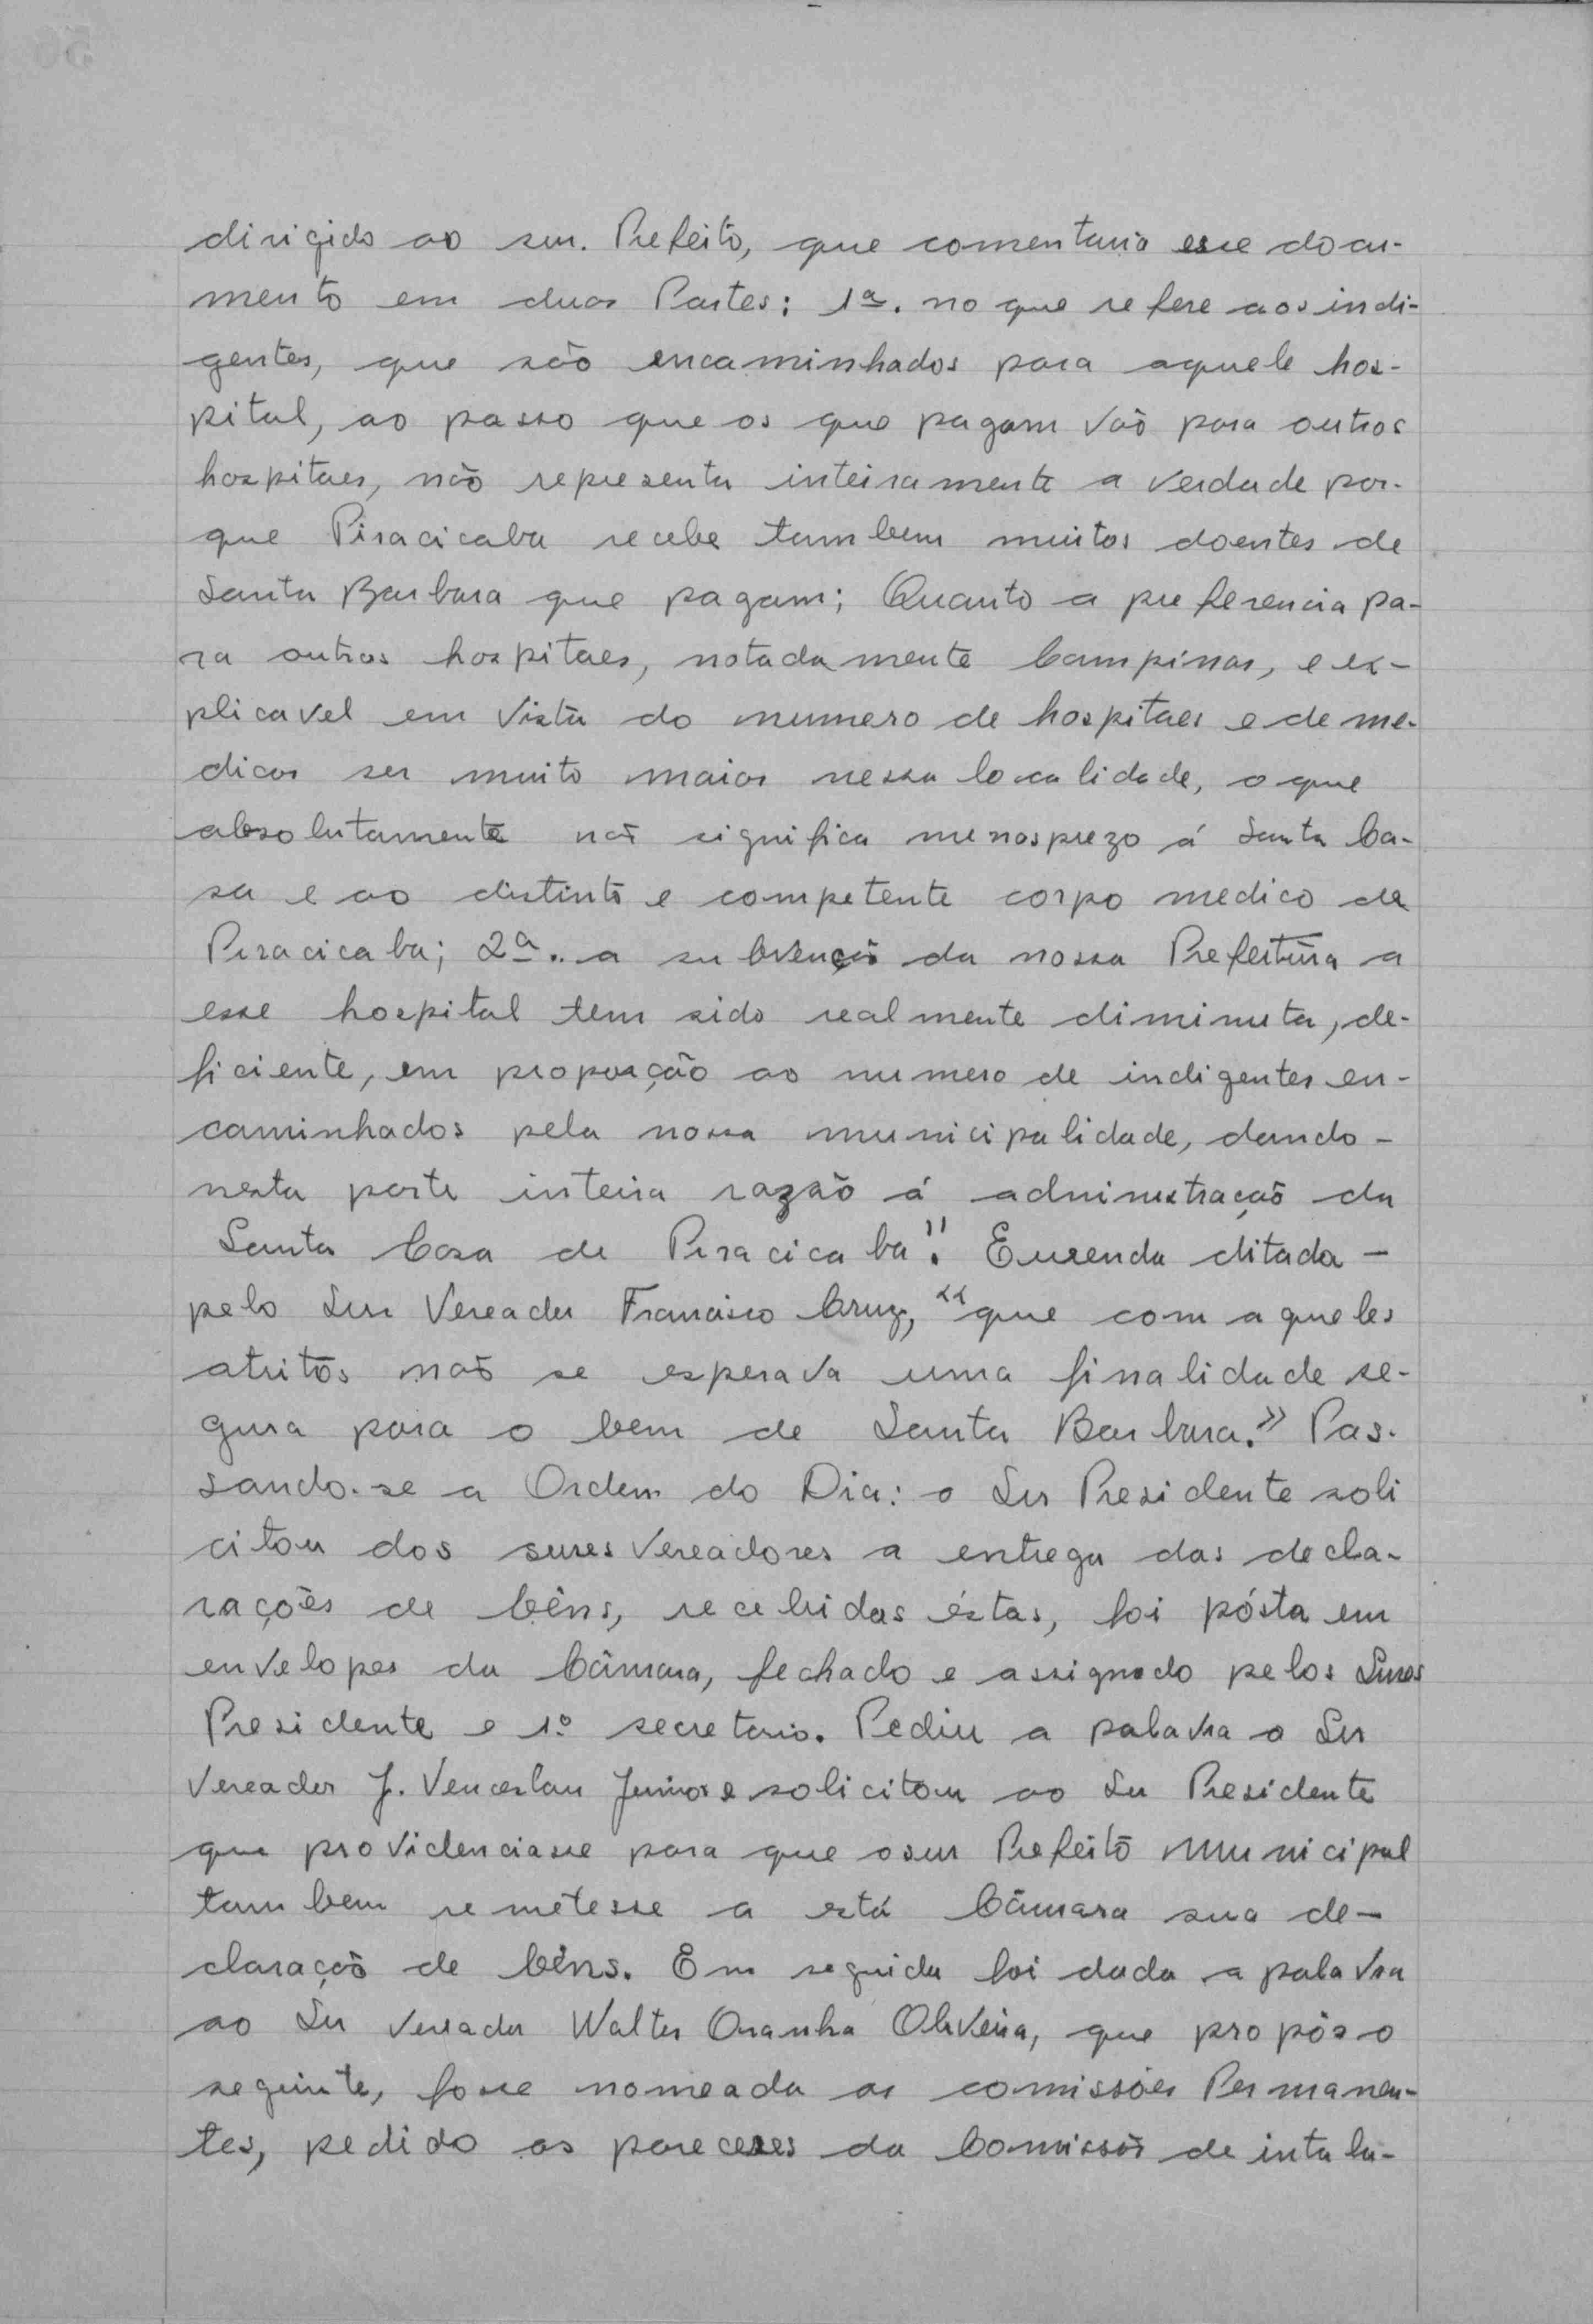 dirigido ao snr. Prefeito, que comentaria esse docu-
mento em duas Partes: 1ª. no que refere aos indi-
gentes, que são encaminhados para aquele hos-
pital, ao passo que os que pagam vão para outros
hospitaes, não representa inteiramente a verdade por-
que Piracicaba recebe tambem muitos doentes de
Santa Barbara que pagam; Quanto a preferencia pa-
ra outros hospitaes, notadamente Campinas, e ex-
plicavel em vista do numero de hospitaes e de me-
dicos ser muito maior nessa localidade, o que
absolutamente não significa menosprezo á Santa Ca-
sa e ao distinto e competente corpo medico de
Piracicaba; 2ª.. a subvenção da nossa Prefeitura a
esse hospital tem sido realmente diminuta, de-
ficiente, em proporção ao numero de indigentes en-
caminhados pela nossa municipalidade, dando -
nesta parte inteira razão á administração da
Santa Casa de Piracicaba". Emenda ditada -
pelo Snr Vereador Francisco Cruz, "que com aqueles
atritos não se esperava uma finalidade se-
gura para o bem de Santa Barbara." Pas-
sando-se a Ordem do Dia: o Snr Presidente soli
citou dos snres Vereadores a entrega das decla-
rações de bêns, recebidas éstas, foi pósta em
envelopes da Câmara, fechado e assignado pelos Snres
Presidente e 1º secretario. Pediu a palavra o Snr
Vereador J. Venceslau Junior e solicitou ao Snr Presidente
que providenciasse para que o snr Prefeito Municipal
tambem remetesse a está Câmara sua de-
claração de bêns. Em seguida foi dada a palavra
ao Snr Vereador Walter Oranha Oliveira, que propôs o
seguinte, fosse nomeada as comissões Permanen-
tes, pedido os pareceres da Comissão de intala-